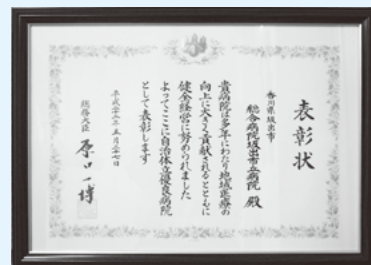 表彰状
香川県坂出市
総合病院坂出市立病院 殿
貴病院は多年にわたり地域医療の
向上に大きく貢献されるとともに
健全経営に努められました
よってここに自治体立優良病院
として表彰します
平成二十二年五月二十七日
総務大臣 原口一博